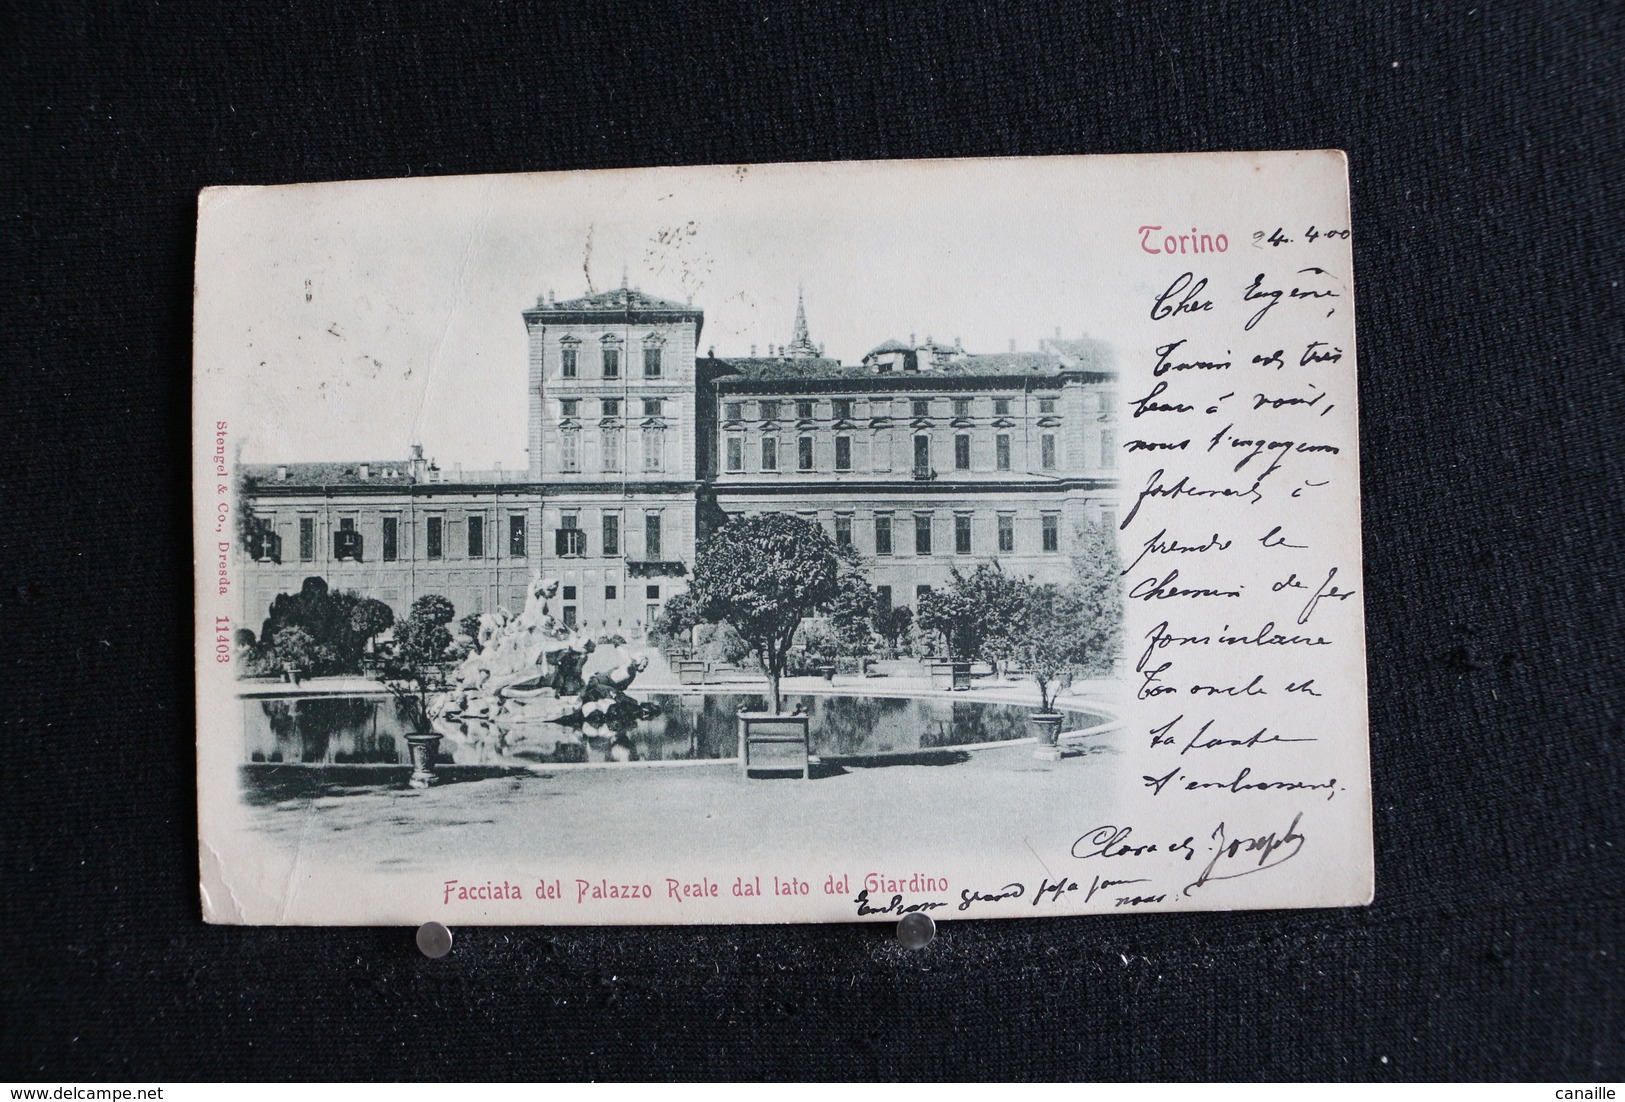 Torino 24.4.00
Cher Eugène,
Turin est très
beau à voir,
nous t'engageons
fortement à
prendre le
chemin de fer
funiculaire
Ton oncle et
ta tante
t'embrassent.
Clara et Joseph
Facciata del Palazzo Reale dal lato del Giardino
Embrasse grand papa pour
nous.
Stengel & Co., Dresda 11403
canaille